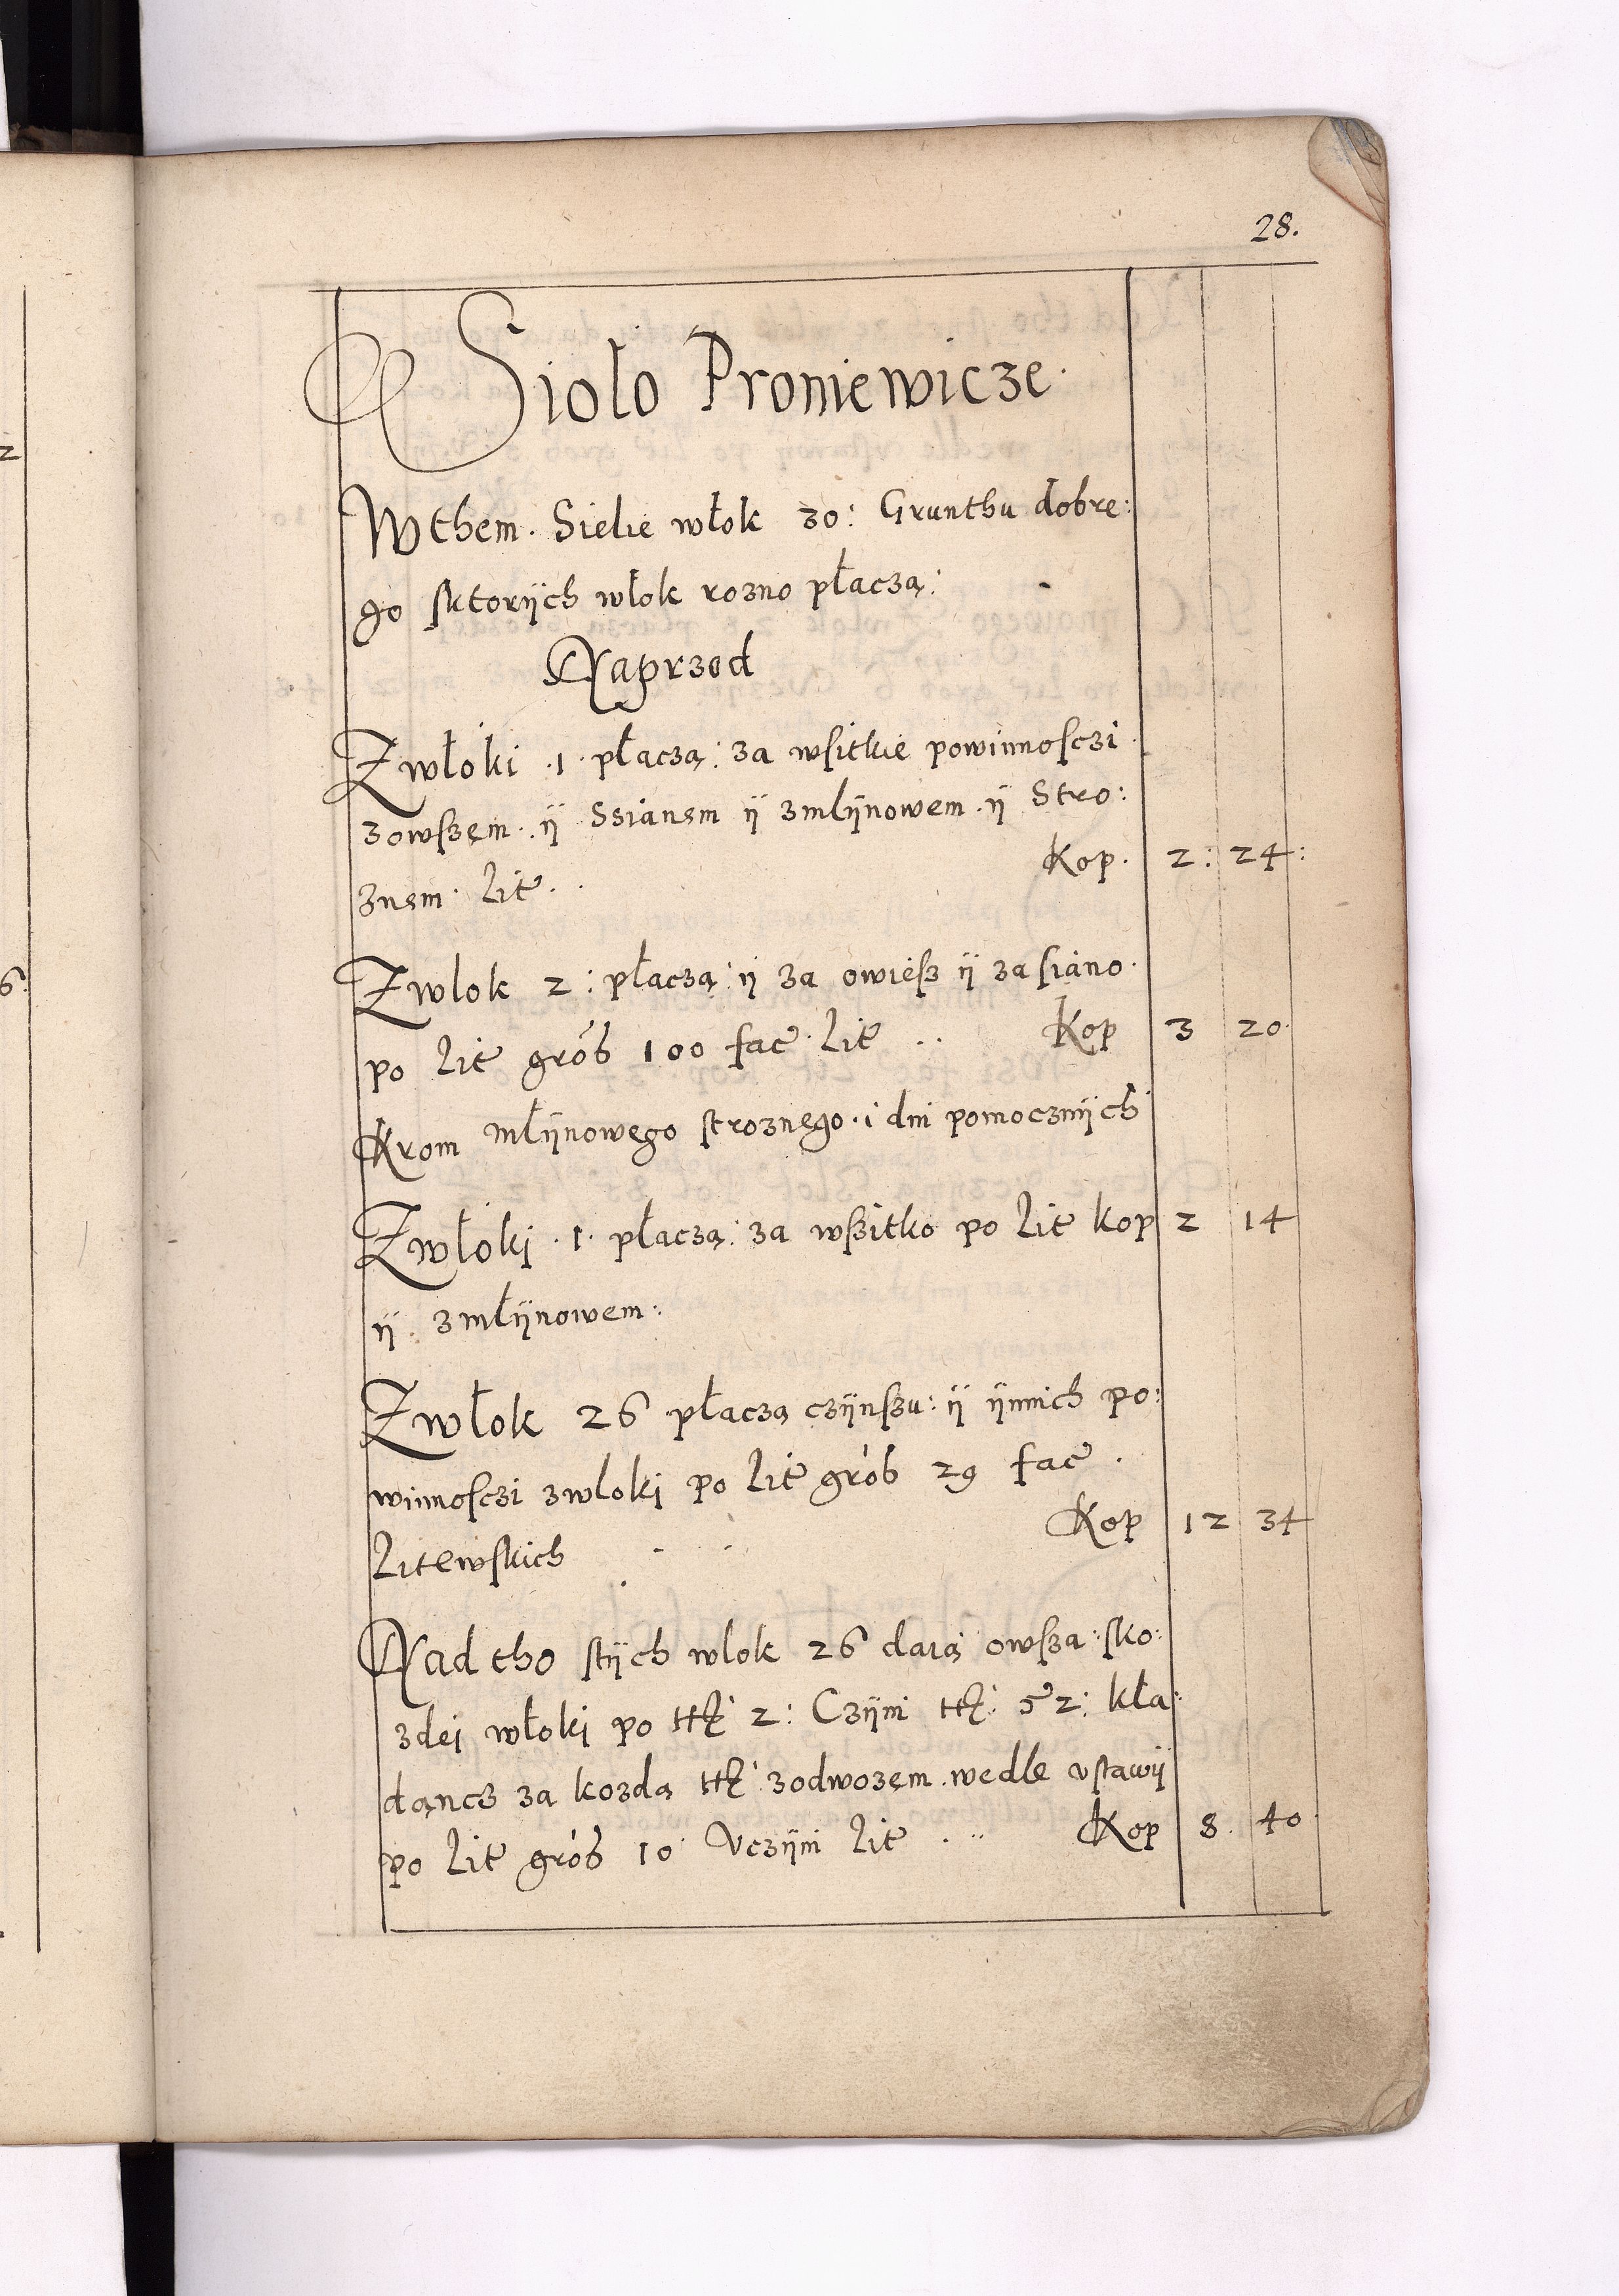 28.
Sioło Proniewicze.
W them. Sielie włok 30: Grunthu dobre:
go sktorÿch włok rozno płaczą:
Naprzod
Z włoki .1. płaczą: za wsitkie powinnosczi.
zowszem. ÿ Ssianem ÿ zmlÿnowem. ÿ Stro:
znem. Lit. . Kop. 2: 24:
Z wlok 2: płaczą: ÿ za owiesz ÿ za siano.
po Lit grob 100 fac Lit .. Kop 3 20.
Krom młÿnowego stroznego. i dni pomocznÿch
Z włoki .1. płaczą: za wszitko po Lit kop 2 14
ÿ. zmłÿnowem:
Z włok 26 płaczą czÿnszu: ÿ ÿnnich po:
winnosczi zwloki po Lit grob 29 fac .
Litewskich Kop 12 34
Nad tho stÿch wlok 26 daią owsza: sko:
zdei włoki po 2: Czÿni 52: kła:
dąncz za kozdą zodwozem. wedle vstawÿ
po Lit grob 10 Vczÿni Lit . .. Kop 8. 40.
2
6: